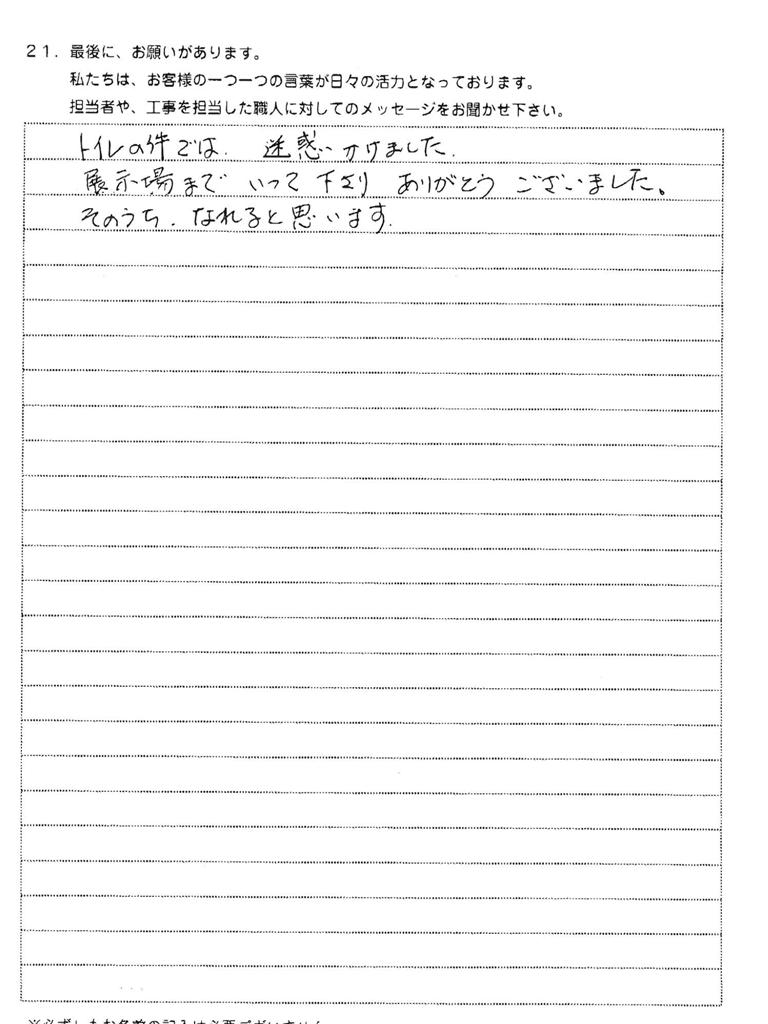 21．最後に、お願いがあります。
私たちは、お客様の一つ一つの言葉が日々の活力となっております。
担当者や、工事を担当した職人に対してのメッセージをお聞かせ下さい。
トイレの件では、迷惑かけました。
展示場まで いって 下さり ありがとう ございました。
そのうち、なれると思います。
※必ずしもお名前の記入は必要ございません